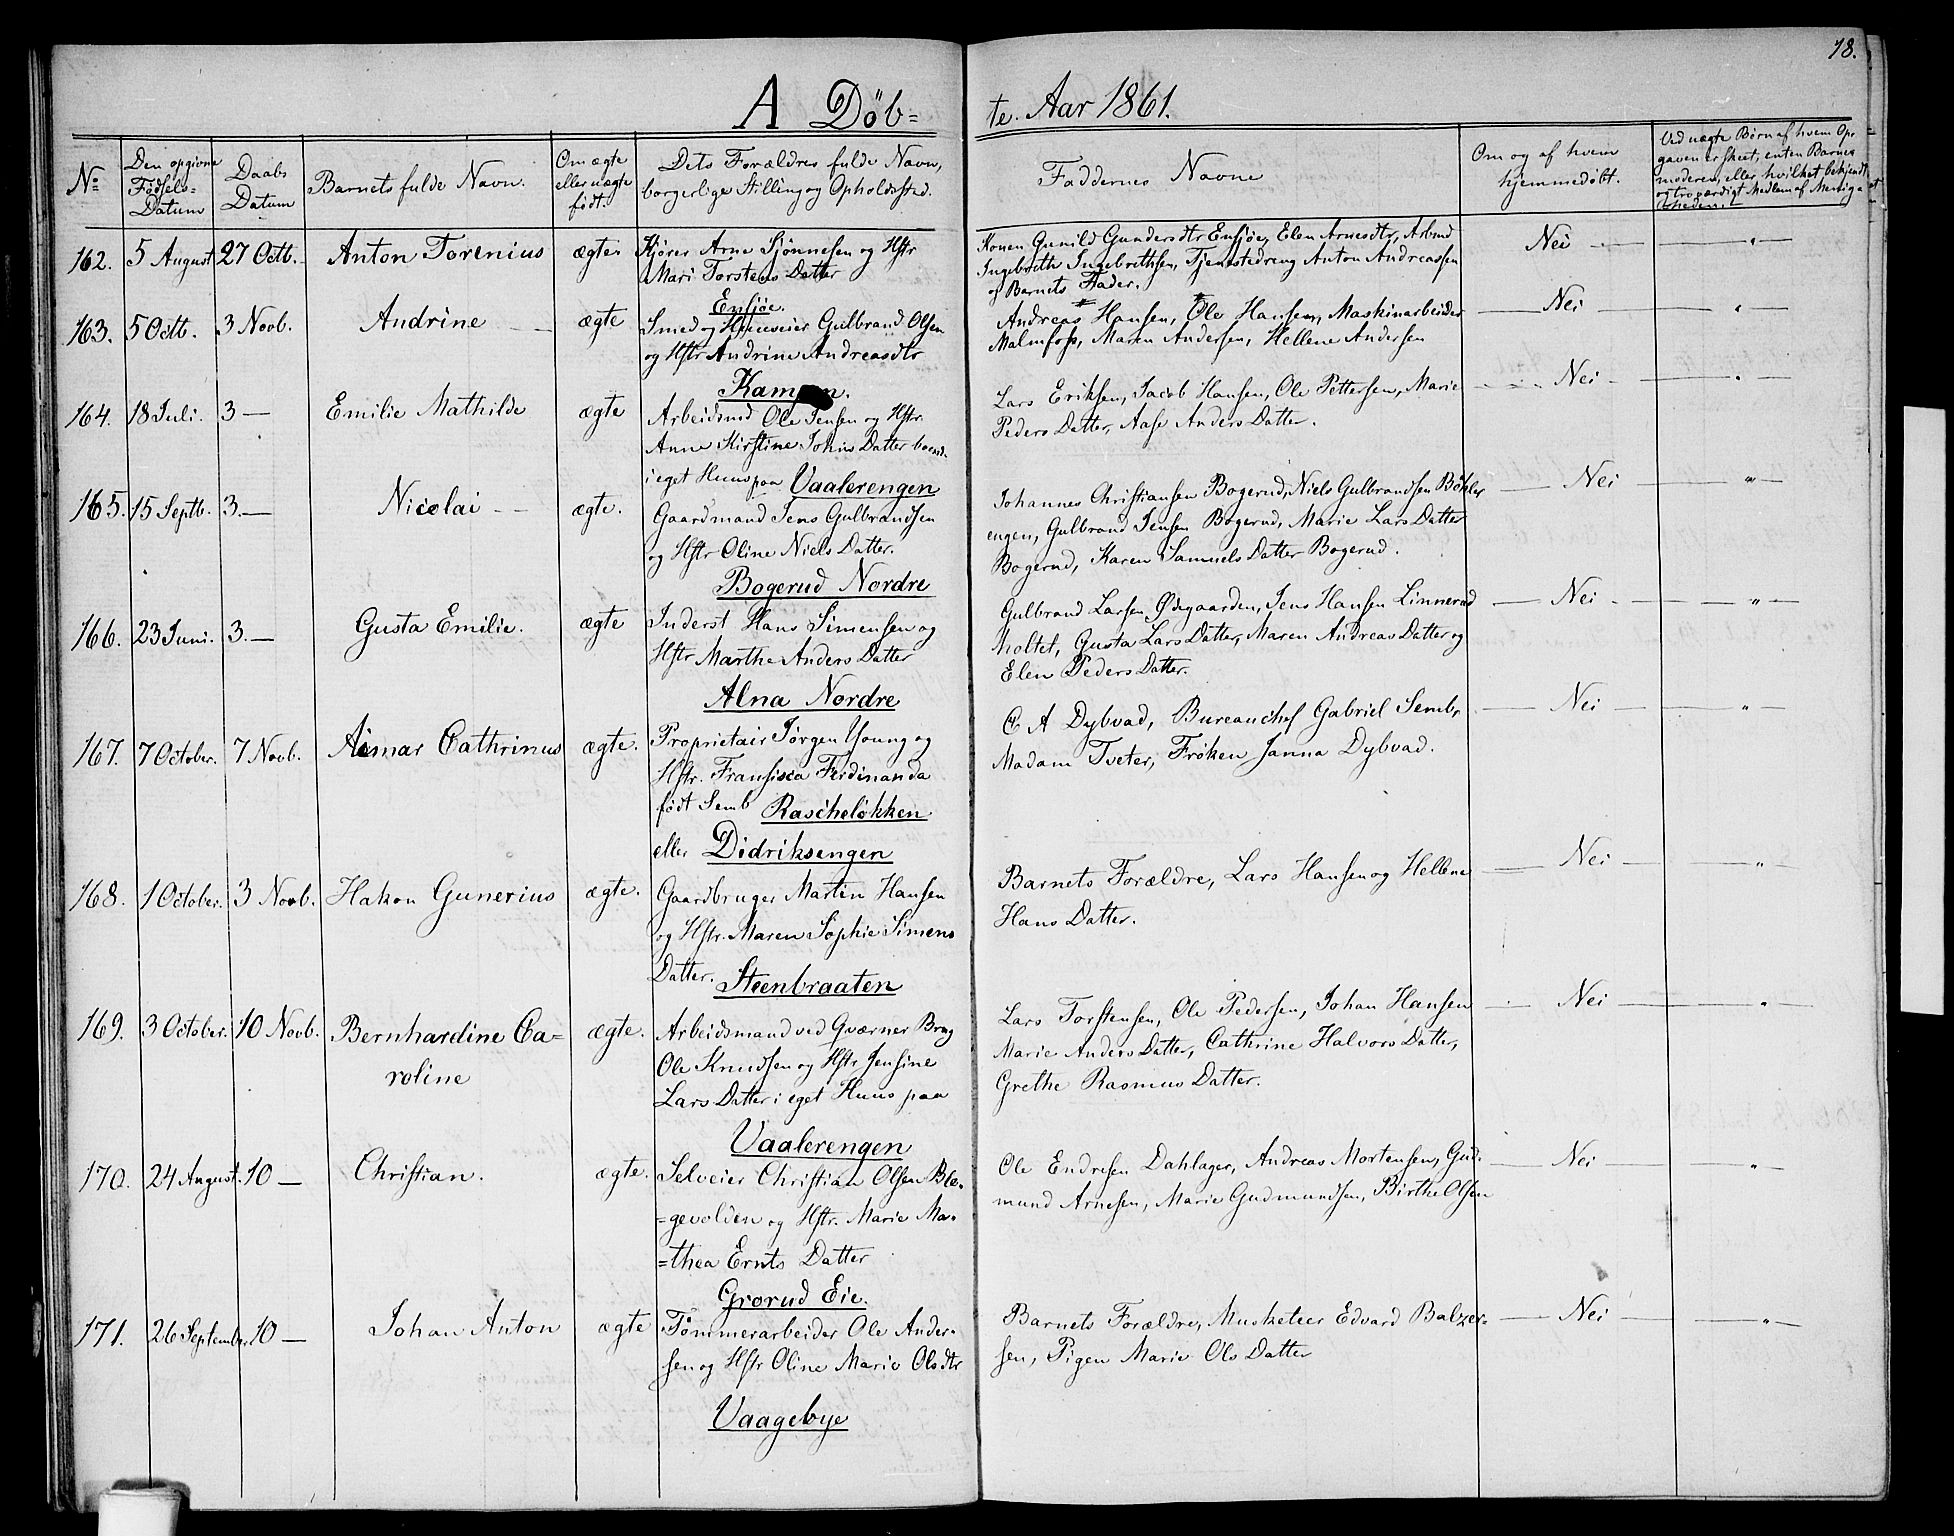 78.
A Døb=
te. Aar 1861.
No
Den opgivne
Fødsels=
Datum
Daabs
Datum
Barnets fulde Navn.
Om ægte
eller uægte
født.
Dets Forældres fulde Navn,
borgerlige Stilling og Opholdssted.
Faddernes Navne
Om og af hvem
hjemmedøbt.
Ved uægte Børn af hvem Op-
gaven er skeet, enten Barnets
moderen, eller hvilket bekjendt
og troværdigt Medlem af Menig-
heden.
162. 5 August 27 Octb. Anton Torenius ægte
Kjører Arne Sjønnesen og Hstr
Mari Torstens Datter
Ensjøe.
Konen Gunild Gundersdtr Ensjøe, Elen Arnesdtr, Arbmd
Ingebreth Ingebrethsen, Tjenestedreng Anton Andreassen
og Barnets Fader.
Nei — "
163. 5 Octb. 3 Novb. Andrine — ægte
Smed og Huuseier Gulbrand Olsen
og Hstr Andrine Andreasdtr
Kampen.
Andreas Hansen, Ole Hansen, Maskinarbeider
Malmfoss, Maren Andersen, Hellene Andersen
Nei — "
164. 18 Juli. 3 — Emilie Mathilde ægte
Arbeidsmd Ole Jensen og Hstr.
Anne Kirstine Johns Datter boend.
i eget Huus paa Vaalerengen
Lars Eriksen, Jacob Hansen, Ole Pettersen, Marie
Peders Datter, Aase Anders Datter.
Nei — "
165. 15 Septb. 3. — Nicolai — ægte.
Gaardmand Jens Gulbrandsen
og Hstr Oline Niels Datter.
Bogerud Nordre
Johannes Christiansen Bogerud, Niels Gulbrandsen Bøhler
engen, Gulbrand Jensen Bogerud, Marie Lars Datter
Bogerud, Karen Samuels Datter Bogerud.
Nei — "
166. 23 Juni. 3. — Gusta Emilie. ægte
Inderst Hans Simensen og
Hstr Marthe Anders Datter
Alna Nordre
Gulbrand Larsen Ødegaarden, Jens Hansen Linnerud
Moltet, Gusta Lars Datter, Maren Andreas Datter og
Elen Peders Datter.
Nei — "
167. 7 October. 7 Novb. Aimar Cathrinus ægte.
Proprietair Jørgen Young og
Hstr. Fransisca Ferdinanda
født Semb Rascheløkken
eller Didriksengen
C A Dybvad, Bureauchef Gabriel Semb,
Madam Tveter, Frøken Janna Dybvad.
Nei — "
168. 1 October. 3 Novb. Hakon Gunerius ægte.
Gaardbruger Martin Hansen
og Hstr. Maren Sophie Simens
Datter. Steenbraaten
Barnets Forældre, Lars Hansen og Hellene
Hans Datter.
Nei — "
169. 3 October. 10 Novb. Bernhardine Ca=
roline
ægte.
Arbeidsmand ved Qværner Brug
Ole Knudsen og Hstr Jensine
Lars Datter i eget Huus paa
Vaalerengen
Lars Torstensen, Ole Pedersen, Johan Hansen
Marie Anders Datter, Cathrine Halvors Datter,
Grethe Rasmus Datter.
Nei — "
170. 24 August. 10 — Christian. ægte.
Selveier Christian Olsen Ble=
=gevolden og Hstr. Marie Ma=
=thea Ernts Datter
Grorud Eie.
Ole Endresen Dahlager, Andreas Mortensen, Gud-
mund Arnesen, Marie Gudmundsen, Birthe Olsen
Nei — "
171. 26 September 10 — Johan Anton ægte
Tømmerarbeider Ole Ander=
sen og Hstr Oline Marie Olsdtr
Vaagebye
Barnets Forældre, Musketeer Edvard Balzer=
sen, Pigen Marie Ols Datter
Nei — "